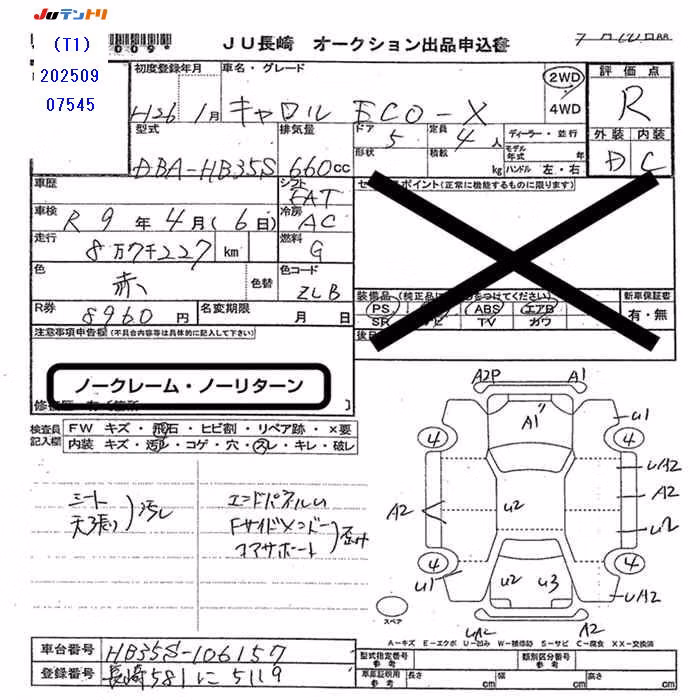 JUテントリ
(T1)
202509
07545
009
JU長崎 オークション出品申込書
初度登録年月
車名・グレード
評価点
H26 1月
キャロル ECO-X
2WD
4WD
R
型式
排気量
ドア 5
定員 4人
ディーラー・並行
外装 内装
DBA-HB35S
660cc
形状
積載 kg
モデル年式 年
ハンドル 左・右
D C
車歴
シフト FAT
セールスポイント(正常に機能するものに限ります)
車検
R9年4月(6日)
冷房 AC
走行
8万7千227 km
燃料 G
色
赤
色替
色コード ZLB
装備品(純正品に○をつけてください)
新車保証書
PS ABS エアB
SR TV カワ
有・無
R券
8960円
名変期限
月 日
注意事項申告欄(不具合内容等は具体的に記入して下さい)
ノークレーム・ノーリターン
検査員記入欄
FW キズ・飛石・ヒビ割・リペア跡・×要
内装 キズ・汚れ・コゲ・穴・スレ・キレ・破レ
シート
天張り
汚レ
エンドパネルU
Fサイドメンバー
コアサポート
歪み
A2P A1
A1
U1
4 4
UA2
A2
A2
U2
U2
4 4
U1
U2 U3
UA2
UA2 A2
スペア
A-キズ E-エクボ U-凹み W-補修跡 S-サビ C-腐食 XX-交換済
車台番号
HB35S-106157
登録番号
長崎581に5119
型式指定番号 参考
類別区分番号 参考
車庫証明用 参考
長さ cm
幅 cm
高さ cm